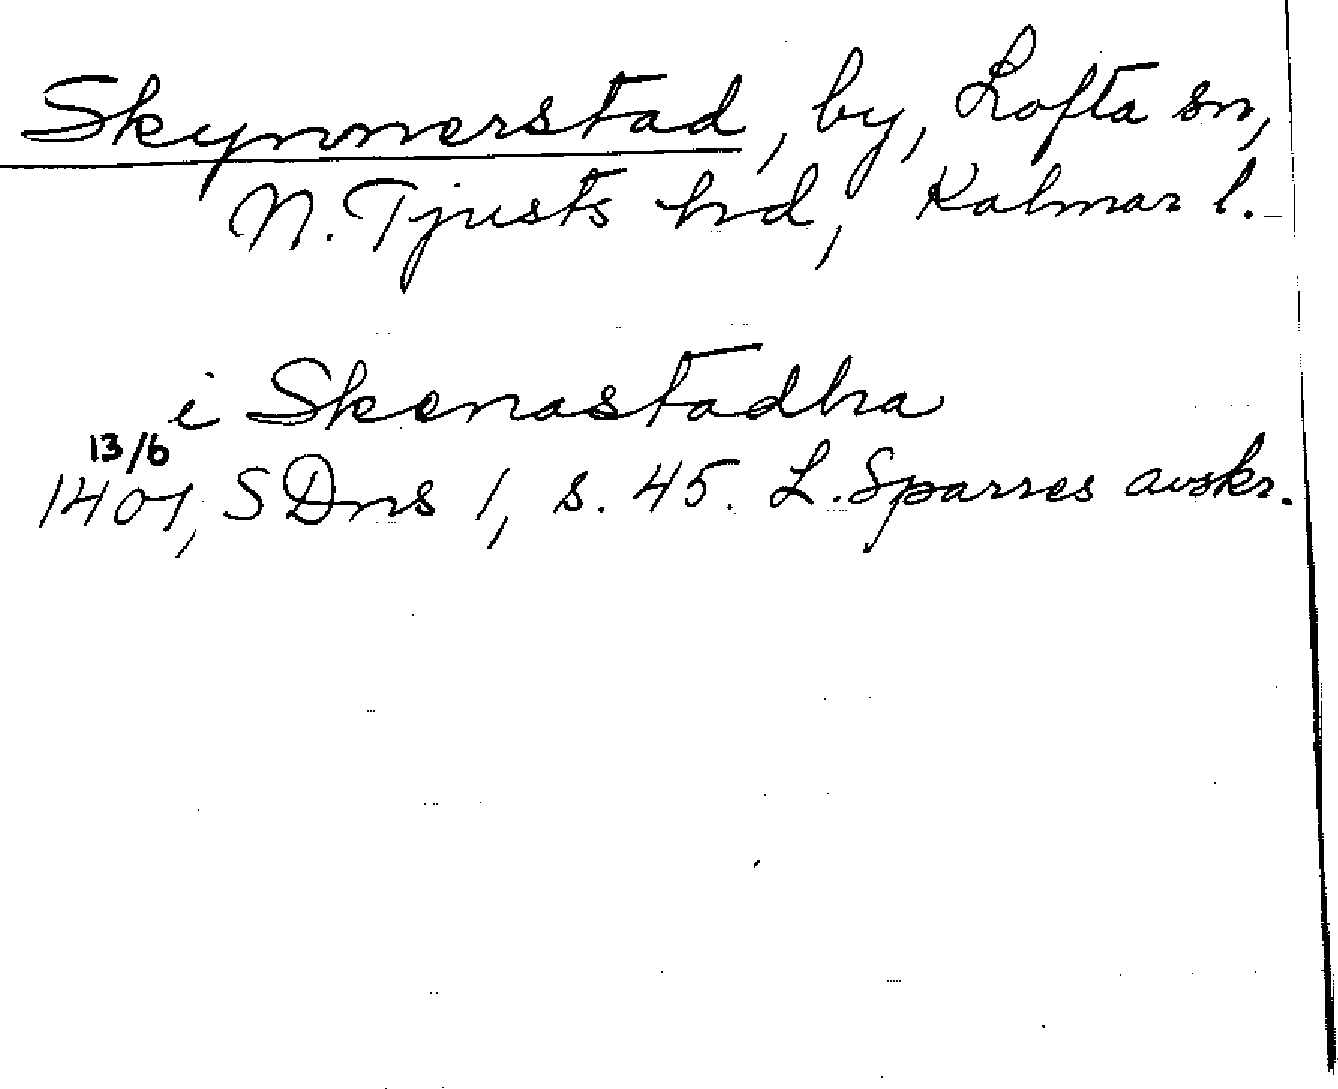 Skynnerstad, by, Lofta sn,
N. Tjusts hd, Kalmar l.
i Skenastadha
13/6
1401, SDns 1, s. 45. L. Sparres avskr.